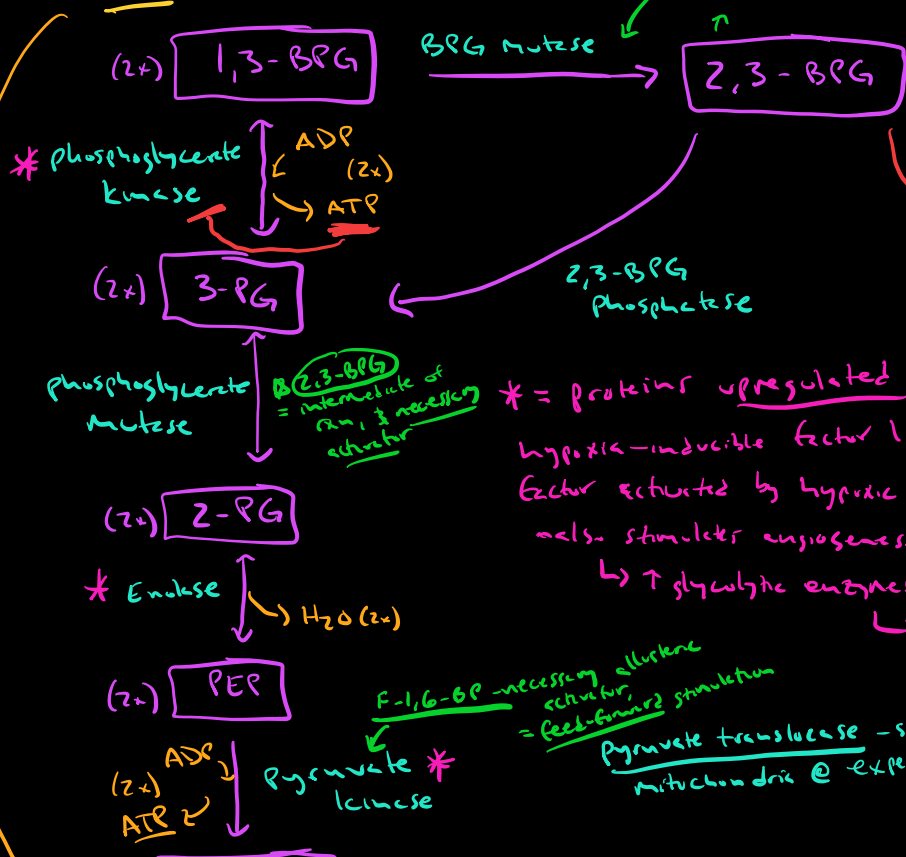 (2x) 1,3-BPG
BPG mutase
2,3-BPG
* phosphoglycerate
kinase
ADP
(2x)
ATP
(2x) 3-PG
2,3-BPG
phosphatase
phosphoglycerate
mutase
2,3-BPG
= intermediate of
rxn, & necessary
activator
* = proteins upregulated
hypoxia-inducible factor 1
factor activated by hypoxic
stimulates angiogenes
↳ ↑ glycolytic enzyme
(2x) 2-PG
* Enolase
H2O (2x)
(2x) PEP
F-1,6-BP - necessary allosteric
activator,
= feed-forward stimulation
ADP
(2x)
ATP
Pyruvate *
kinase
Pyruvate translocase - s
mitochondria @ expe